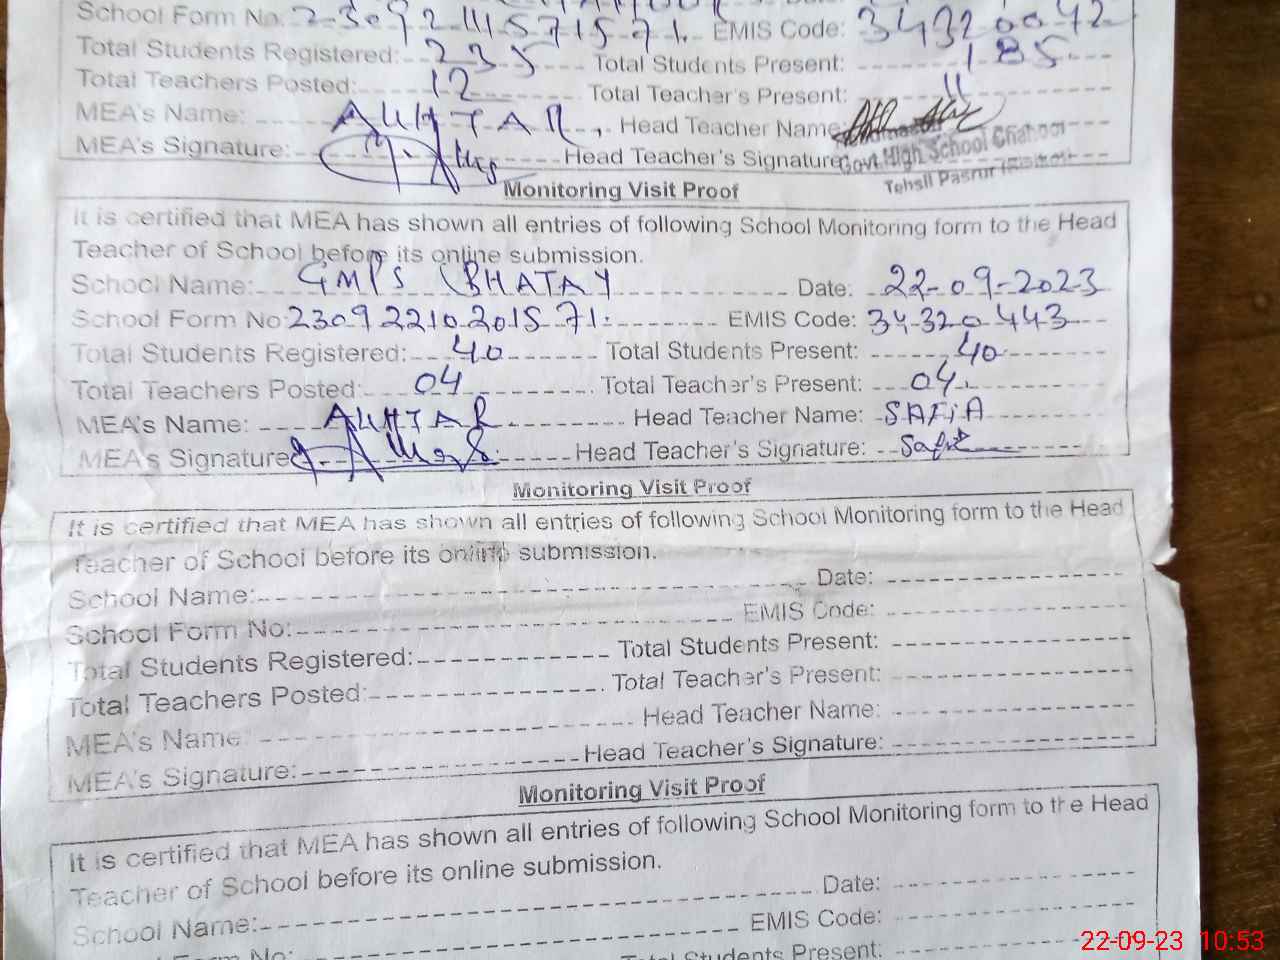 School Form No: 2-3092111571571. EMIS Code: 34320042
Total Students Registered: 235 Total Students Present: 185
Total Teachers Posted: 12 Total Teacher's Present: 11
MEA's Name: AKHTAR, Head Teacher Name:
MEA's Signature: Head Teacher's Signature: Govt. High School
Tehsil Pasrur
Monitoring Visit Proof
It is certified that MEA has shown all entries of following School Monitoring form to the Head
Teacher of School before its online submission.
School Name: GMPS BHATAY Date: 22-09-2023
School Form No: 23092210201571. EMIS Code: 34320443
Total Students Registered: 40 Total Students Present: 40
Total Teachers Posted: 04 Total Teacher's Present: 04.
MEA's Name: AKHTAR Head Teacher Name: SAFIA
MEA's Signature: Head Teacher's Signature: Safia
Monitoring Visit Proof
It is certified that MEA has shown all entries of following School Monitoring form to the Head
Teacher of School before its online submission.
School Name: Date:
School Form No: EMIS Code:
Total Students Registered: Total Students Present:
Total Teachers Posted: Total Teacher's Present:
MEA's Name: Head Teacher Name:
MEA's Signature: Head Teacher's Signature:
Monitoring Visit Proof
It is certified that MEA has shown all entries of following School Monitoring form to the Head
Teacher of School before its online submission.
School Name: Date:
School Form No: EMIS Code:
Total Students Present:
22-09-23 10:53